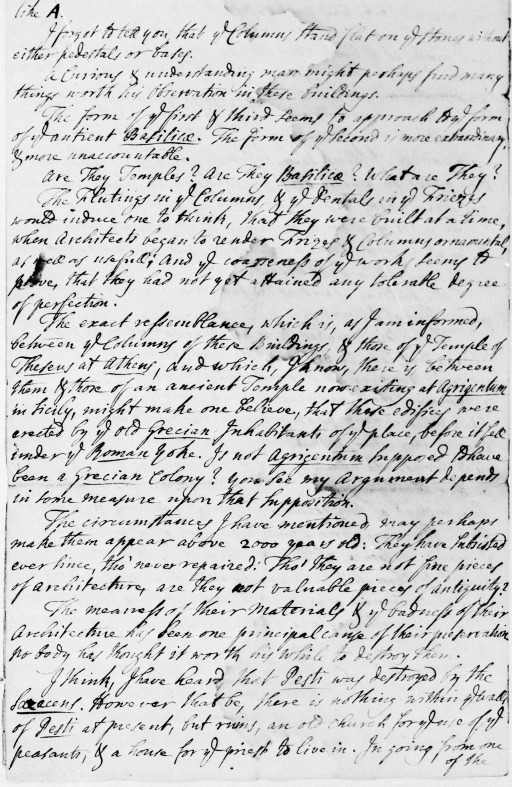 like A.
I forgot to tell you, that yͤ Columns stand flat on yͤ stones without
either pedestals or bases.
A Curious & understanding man might perhaps find many
things worth his Observation in these buildings.
The form of yͤ first & third seems to approach to yͤ form
of yͤ antient Basilicæ. The form of yͤ second is more extraordinary,
& more unaccountable.
Are They Temples? Are They Basilicæ? What are They?
The Flutings in yͤ Columns & yͤ Dentals in yͤ Friezes
would induce one to think, that they were built at a time,
when Architects began to render Frizes & Columns ornamental,
as well as usefull; And yͤ coarseness of yͤ work seems to
prove, that they had not yet attained any tolerable degree
of perfection.
The exact ressemblance, which is, as I am informed,
between yͤ Columns of these Buildings, & those of yͤ Temple of
Theseus at Athens, and which, I know, there is between
them & those of an ancient Temple now existing at Agrigentum
in Sicily, might make one believe, that these edifices were
erected by yͤ old Grecian Inhabitants of yͤ place, before it fell
under yͤ Roman Yoke. Is not Agrigentum supposed to have
been a Grecian Colony? You see my Argument depends
in some measure upon that supposition.
The circumstances I have mentioned may perhaps
make them appear above 2000 years old: They have subsisted
ever since, tho' never repaired: Tho' they are not fine pieces
of architecture, are they not valuable pieces of antiquity?
The meaness of their Materials & yͤ badness of their
Architecture has been one principal cause of their preservation
No body has thought it worth his while to destroy them.
I think, I have heard, that Pesti was destroyed by the
Saracens. However that be, there is nothing within yͤ walls
of Pesti at present, but ruins, an old church for yͤ use of yͤ
peasants, & a house for yͤ priest to live in. In going from one
of the